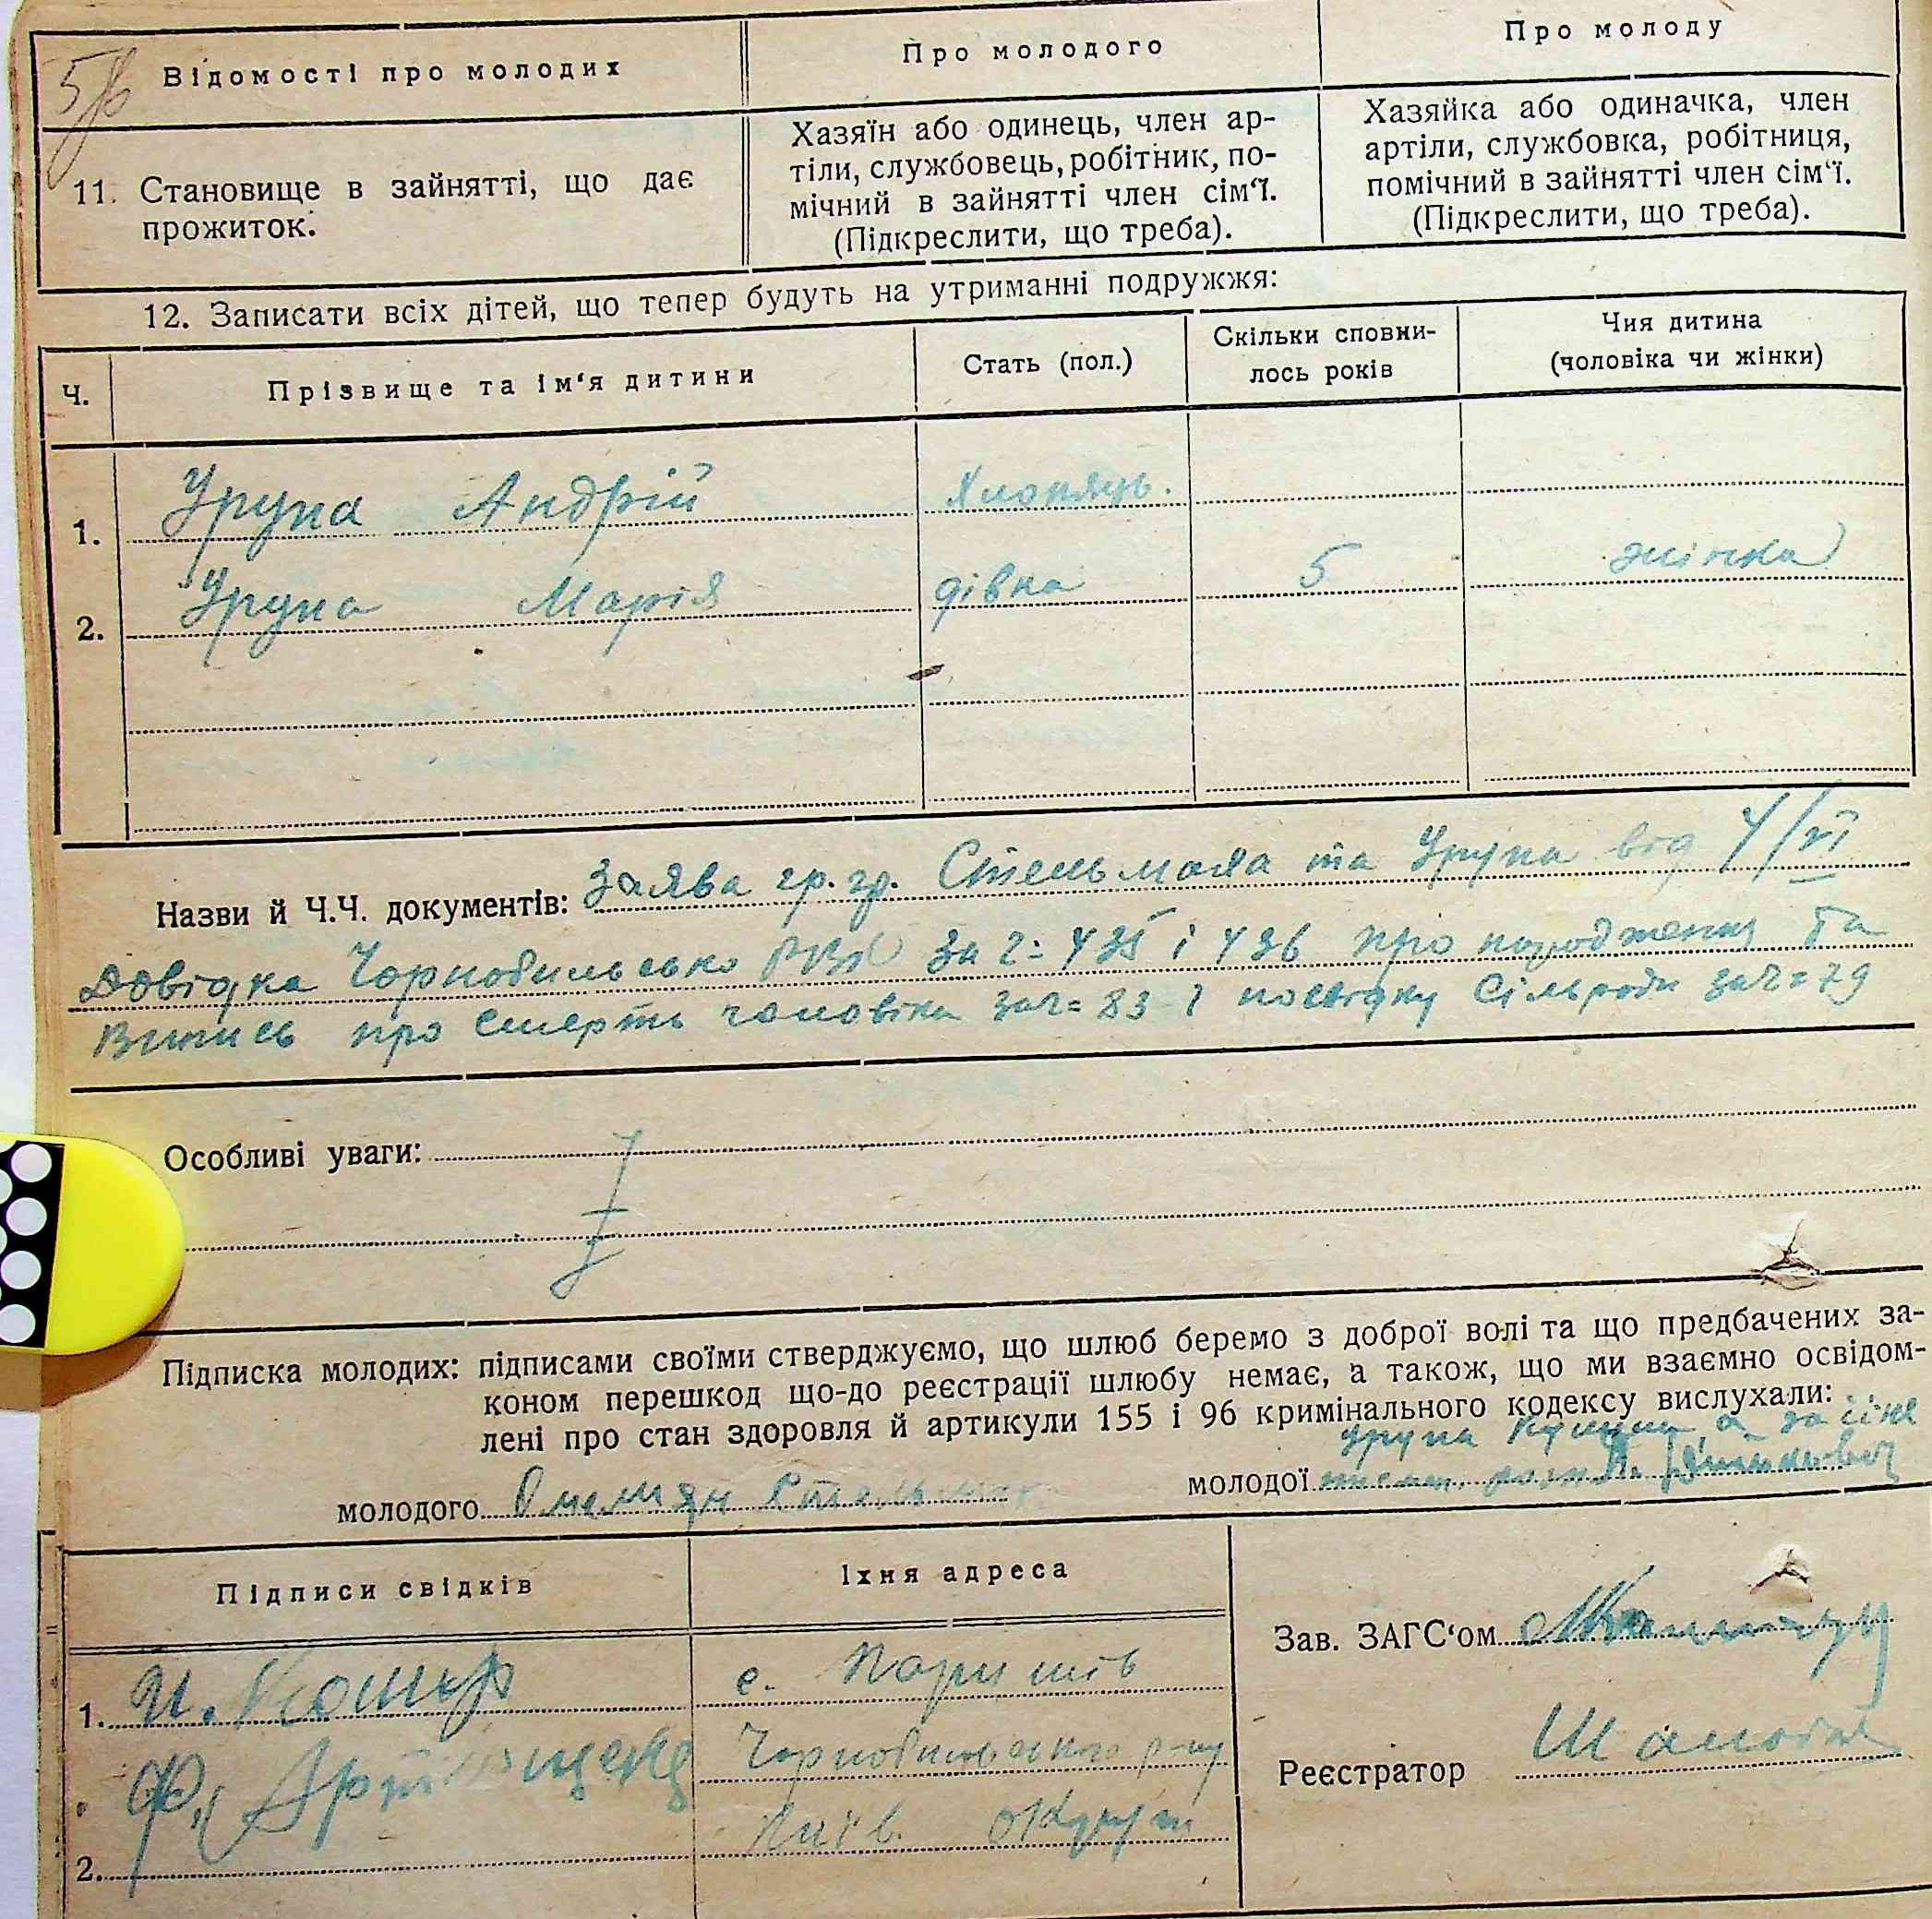 Відомості про молодих
Про молодого
Про молоду
11. Становище в зайнятті, що дає
прожиток.
Хазяїн або одинець, член ар-
тіли, службовець, робітник, по-
мічний в зайнятті член сім‘ї.
(Підкреслити, що треба).
Хазяйка або одиначка, член
артіли, службовка, робітниця,
помічний в зайнятті член сім‘ї.
(Підкреслити, що треба).
12. Записати всіх дітей, що тепер будуть на утриманні подружжя:
Ч.
Прізвище та ім‘я дитини
Стать (пол.)
Скільки сповни-
лось років
Чия дитина
(чоловіка чи жінки)
1. Урупа Андрій хлопяць.
2. Урупа Марія дівка 5 жінка
Назви й Ч.Ч. документів: Заява гр. гр. Стельмаха та Урупа від /VI
Довідка Чорнобильсько за ч= 435 і 436 про народження та
Випись про смерть чоловіка за ч= 83 і посвідку Сільради за ч= 79
Особливі уваги:
Підписка молодих: підписами своїми стверджуємо, що шлюб беремо з доброї волі та що предбачених за-
коном перешкод що-до реєстрації шлюбу немає, а також, що ми взаємно освідом-
лені про стан здоровля й артикули 155 і 96 кримінального кодексу вислухали:
молодого Омелян
Урупа а за її не
молодої
Підписи свідків
Їхня адреса
1.
с. Паришів
Чорнобильського р-ну
Київ. округи
2.
Зав. ЗАГС‘ом
Реєстратор